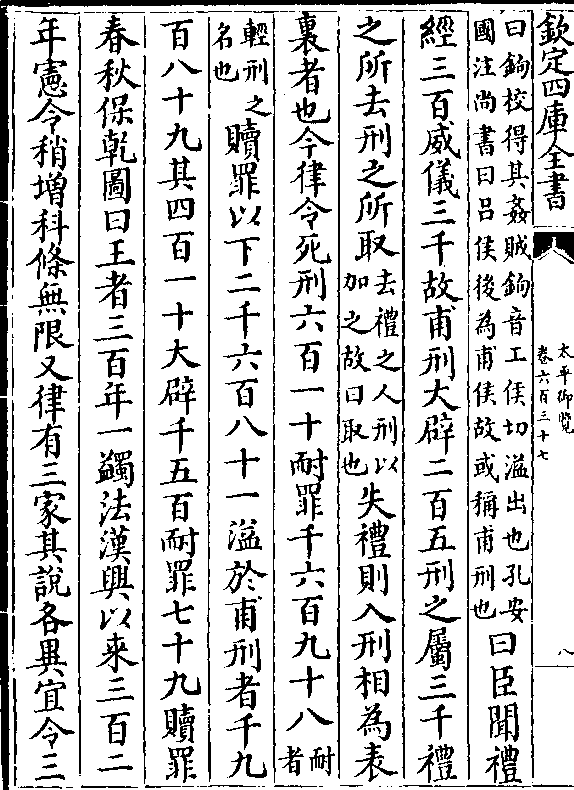 欽定四庫全書
太平御覽
卷六百三十七
八
曰鉤校得其姦賊鉤音工侯切溢出也孔安
國注尚書曰呂侯後為甫侯故或稱甫刑也
曰臣聞禮
經三百威儀三千故甫刑大辟二百五刑之屬三千禮
之所去刑之所取
去禮之人刑以
加之故曰取也
失禮則入刑相為表
裏者也今律令死刑六百一十耐罪千六百九十八
耐者
輕刑之
名也
贖罪以下二千六百八十一溢於甫刑者千九
百八十九其四百一十大辟千五百耐罪七十九贖罪
春秋保乾圖曰王者三百年一蠲法漢興以來三百二
年憲令稍增科條無限又律有三家其說各異宜令三